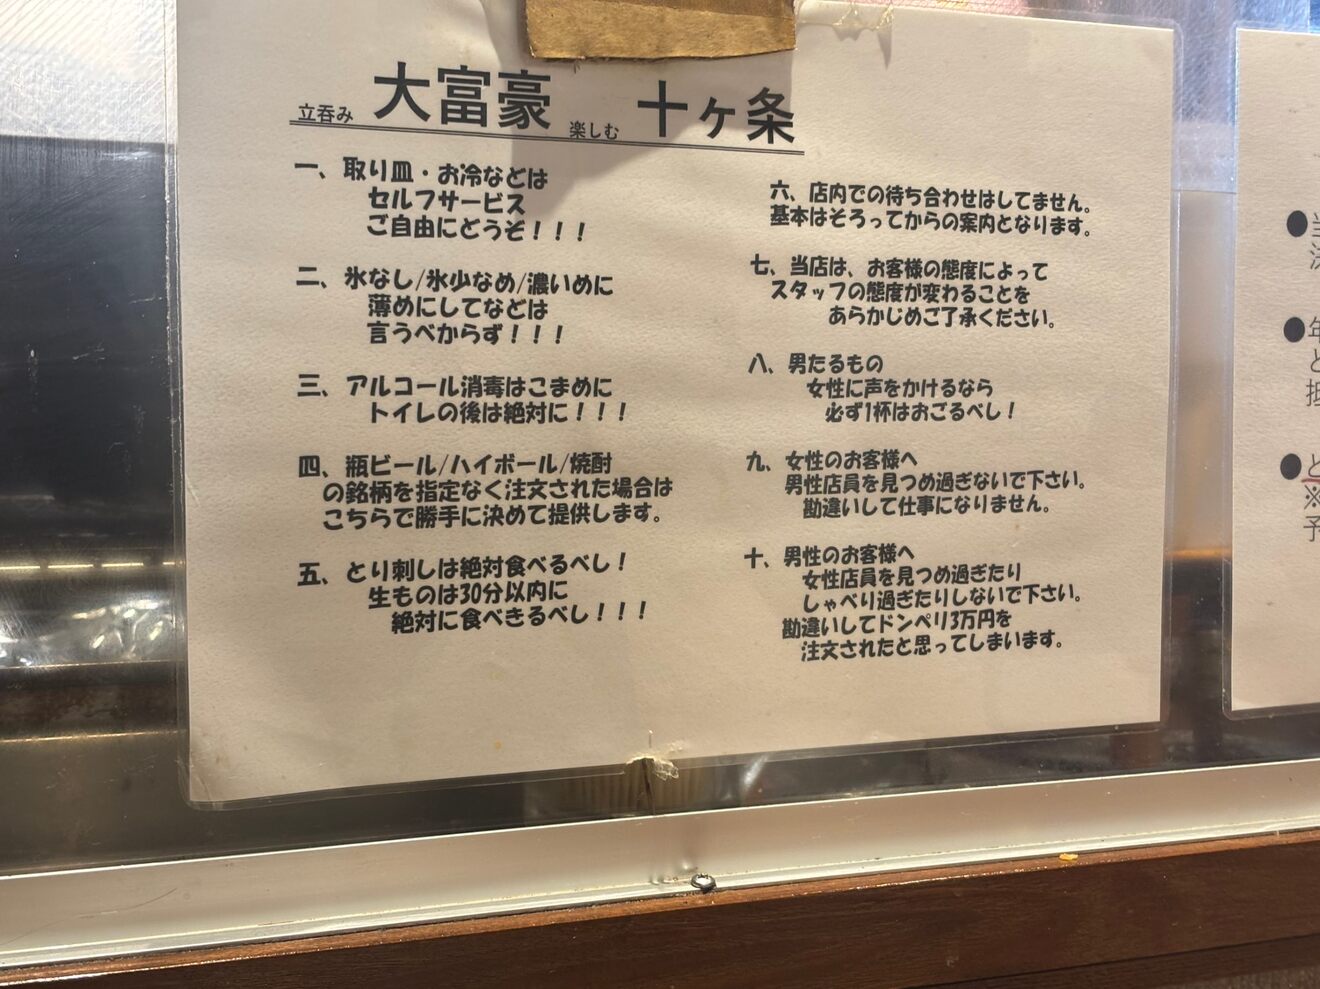 立呑み 大富豪 楽しむ 十ヶ条
一、取り皿・お冷などは
セルフサービス
ご自由にどうぞ！！！
二、氷なし/氷少なめ/濃いめに
薄めにしてなどは
言うべからず！！！
三、アルコール消毒はこまめに
トイレの後は絶対に！！！
四、瓶ビール/ハイボール/焼酎
の銘柄を指定なく注文された場合は
こちらで勝手に決めて提供します。
五、とり刺しは絶対食べるべし！
生ものは30分以内に
絶対に食べきるべし！！！
六、店内での待ち合わせはしてません。
基本はそろってからの案内となります。
七、当店は、お客様の態度によって
スタッフの態度が変わることを
あらかじめご了承ください。
八、男たるもの
女性に声をかけるなら
必ず1杯はおごるべし！
九、女性のお客様へ
男性店員を見つめ過ぎないで下さい。
勘違いして仕事になりません。
十、男性のお客様へ
女性店員を見つめ過ぎたり
しゃべり過ぎたりしないで下さい。
勘違いしてドンペリ3万円を
注文されたと思ってしまいます。
●当
●年
と
●と
※
予